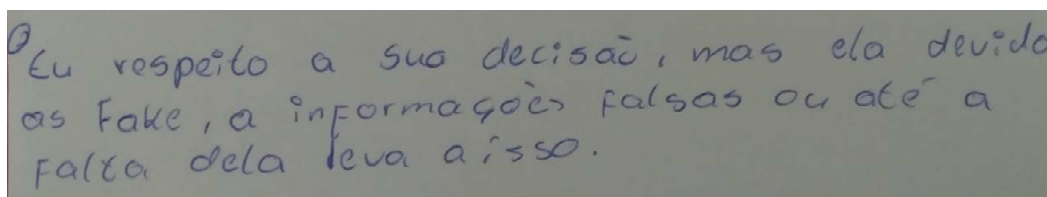 Eu respeito a sua decisaõ, mas ela devido
as Fake, a informaçoẽs falsas ou até a
Falta dela leva a isso.